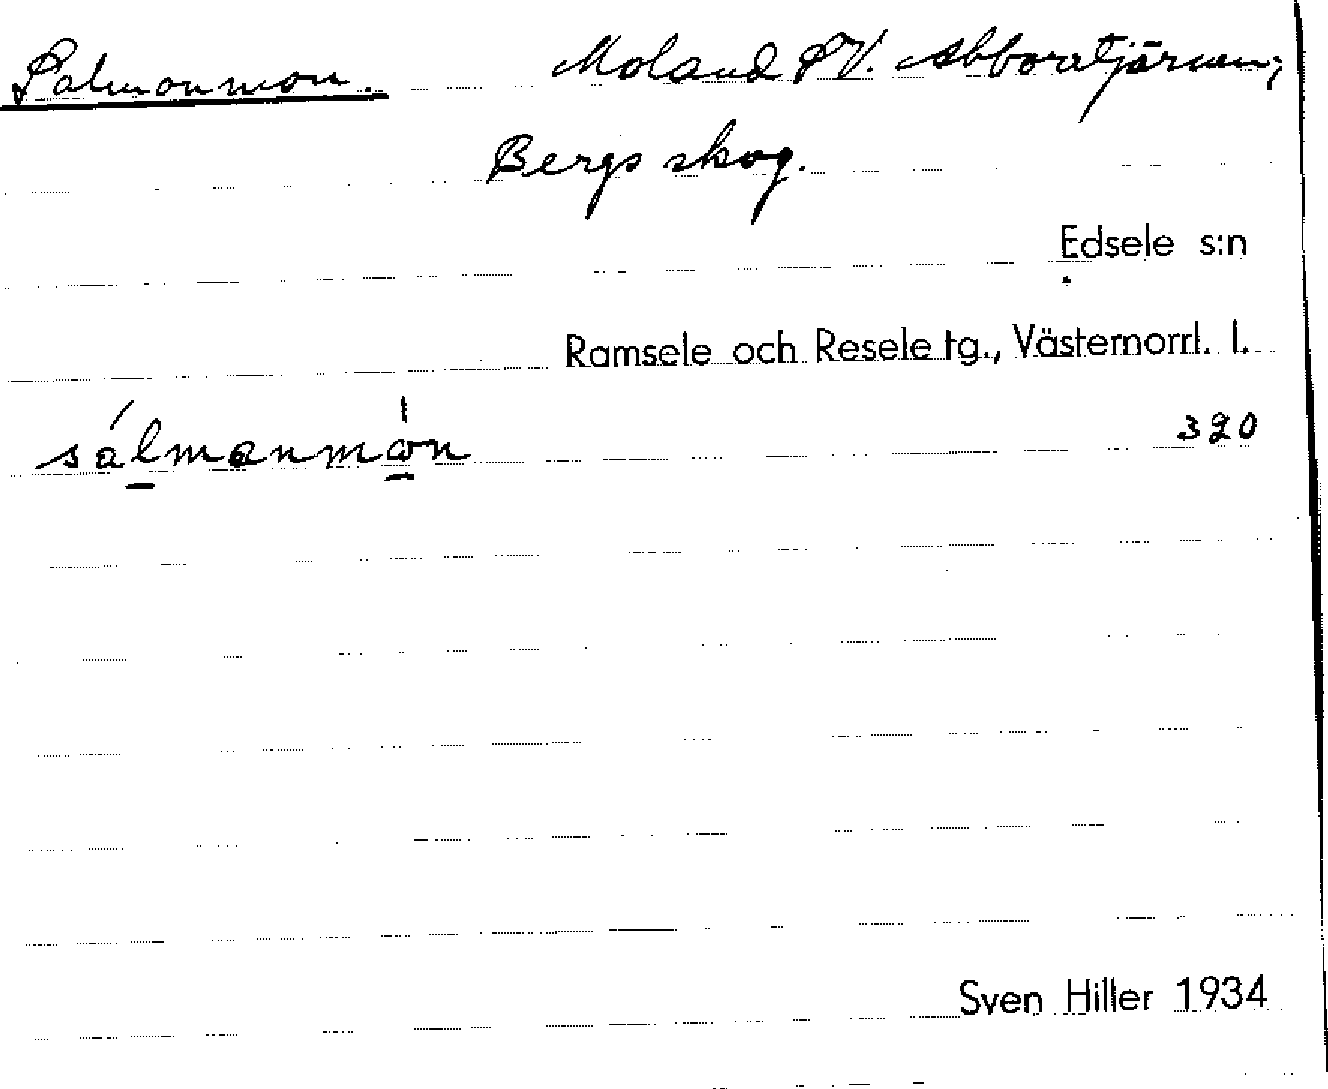 Salmonmon. Moland SV. Abborrtjärnen,
Bergs skog.
Edsele s:n
Ramsele och Resele tg., Västernorrl. l.
sálmanmòn 320
Sven Hiller 1934